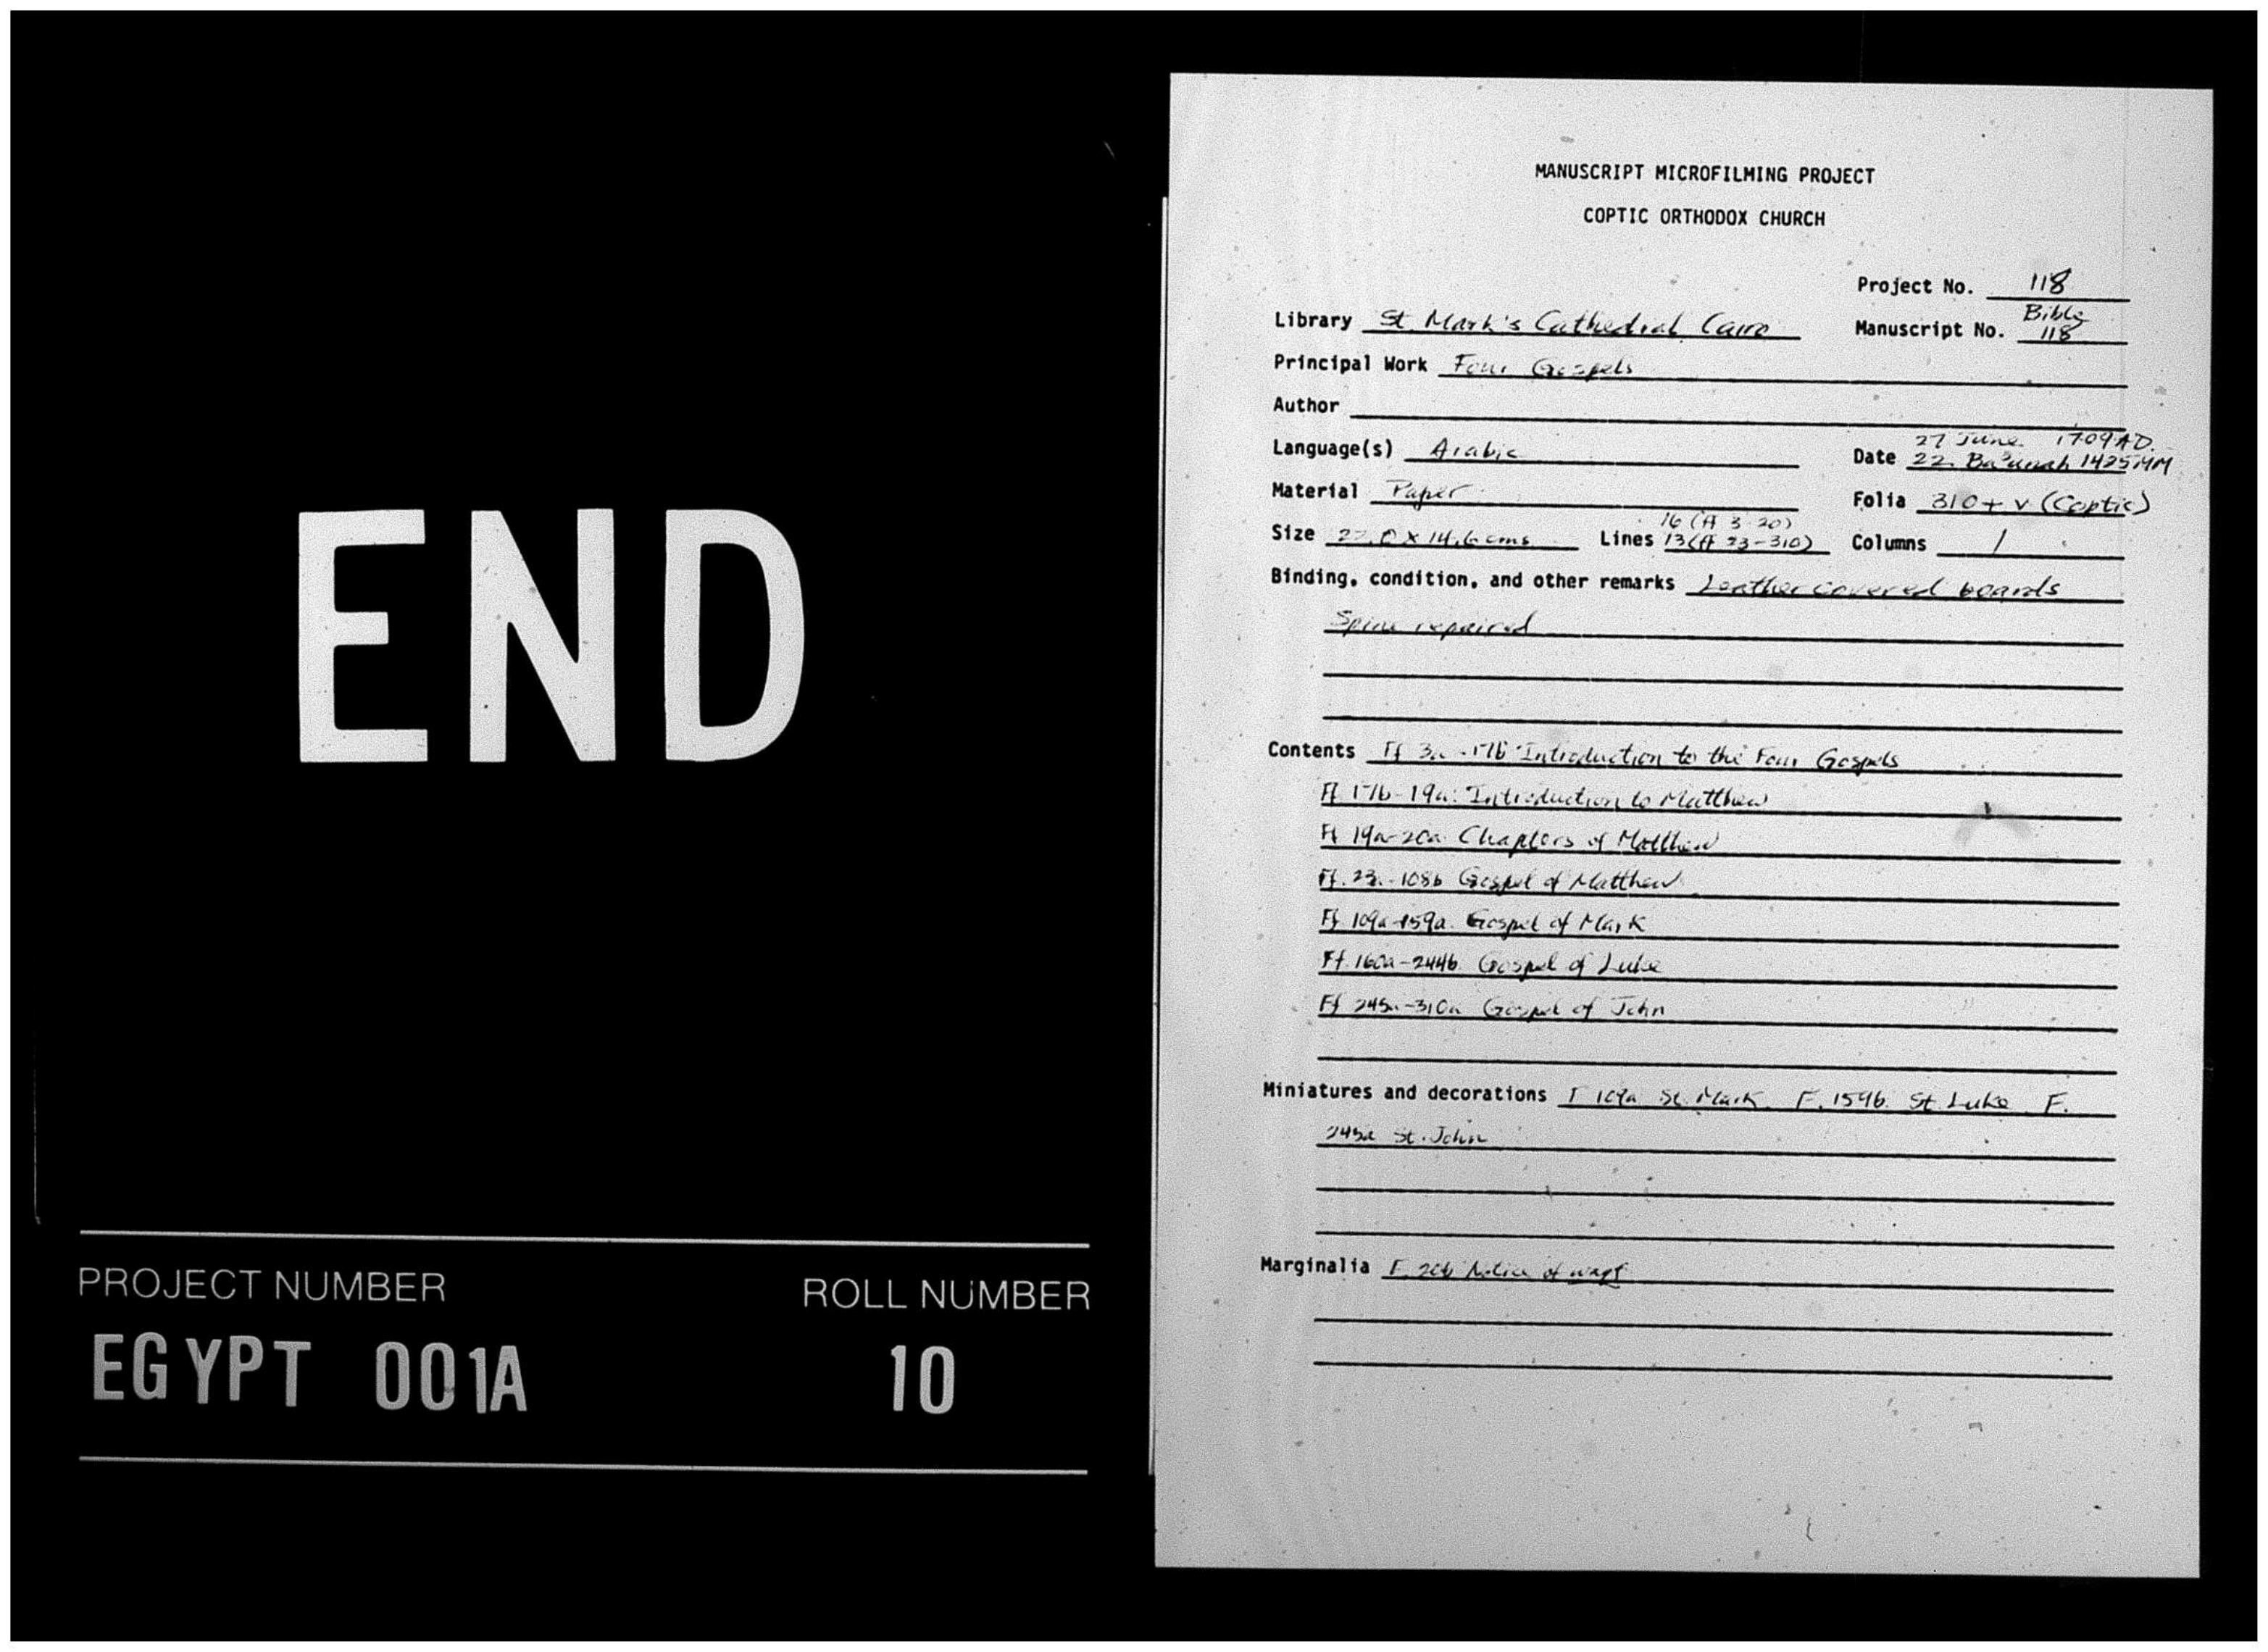 END
PROJECT NUMBER ROLL NUMBER
EGYPT 001A 10
MANUSCRIPT MICROFILMING PROJECT
COPTIC ORTHODOX CHURCH
Project No. 118
Library St Mark's Cathedral Cairo Manuscript No. Bible 118
Principal Work Four Gospels
Author
Language(s) Arabic Date 27 June 1709 AD.
22 Ba'unah 1425 MM
Material Paper Folia 310 + v (Coptic)
Size x 14.6 cms Lines 16 (ff 3-20) 13 (ff 23-310) Columns 1
Binding, condition, and other remarks Leather covered boards
Spine repaired
Contents Ff 3a-17b Introduction to the Four Gospels
Ff 17b-19a: Introduction to Matthew
Ff 19a-20a Chapters of Matthew
Ff. -108b Gospel of Matthew
Ff 109a-159a. Gospel of Mark
Ff. 160a-244b Gospel of Luke
Ff 245a-310a Gospel of John
Miniatures and decorations F 109a St. Mark F. 159b. St. Luke F.
245a St. John
Marginalia F. 20b Notice of waqf